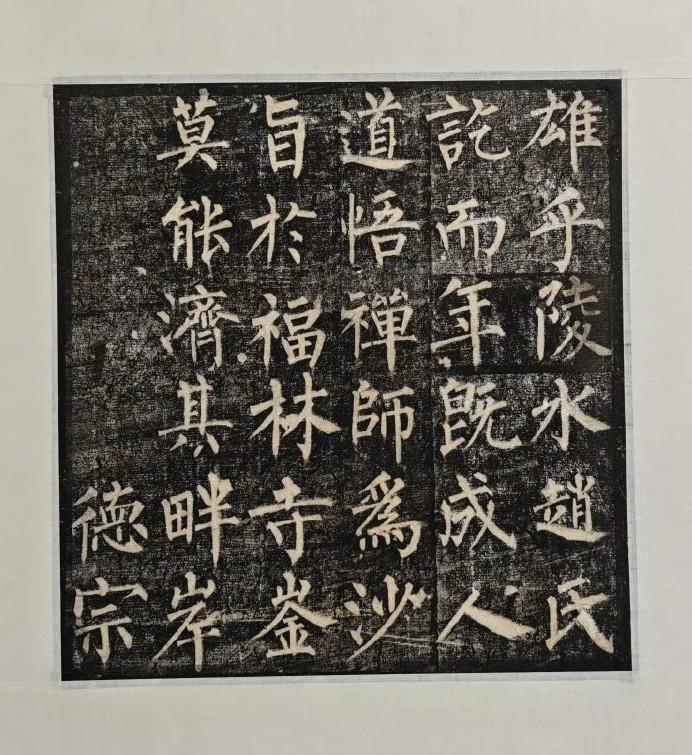 雄乎陵水趙氏
訖而年既成人
道悟禪師爲沙
旨於福林寺崟
莫能濟其畔岸
德宗